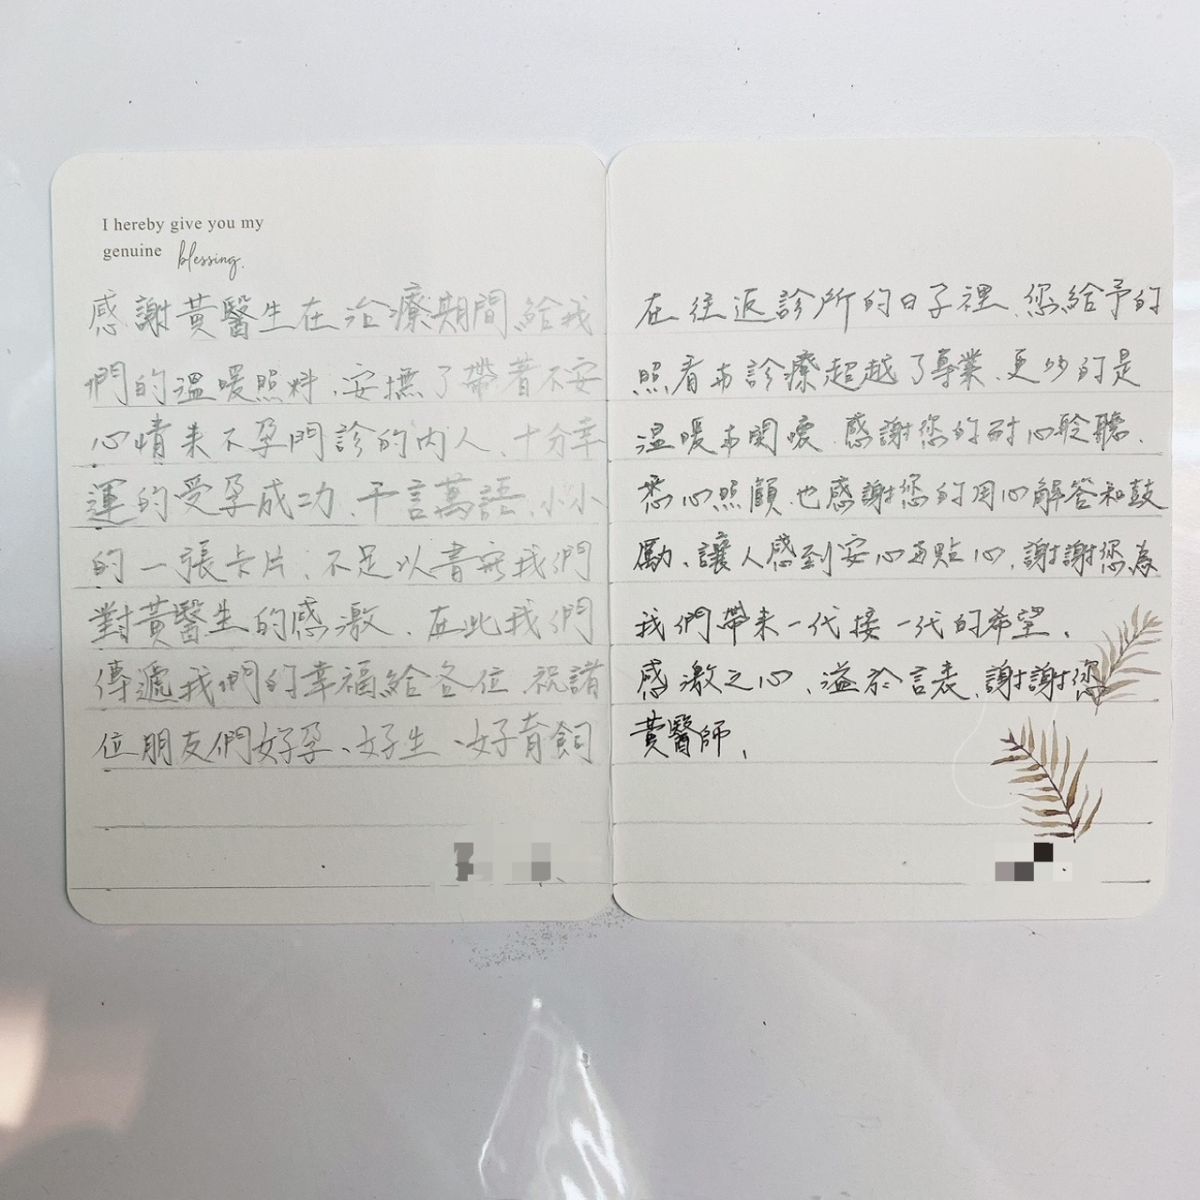 I hereby give you my
genuine blessing.
感謝黃醫生在治療期間給我
們的溫暖照料,安撫了帶著不安
心情來不孕門診的內人、十分幸
運的受孕成功、千言萬語、小小
的一張卡片,不足以書寫我們
對黃醫生的感激、在此我們
傳遞我們的幸福給各位 祝諸
位朋友們好孕、好生、好育飼
在往返診所的日子裡、您給予的
照看和診療超越了專業、更多的是
溫暖和關噯、感謝您的耐心聆聽、
悉心照顧、也感謝您的用心解答和鼓
勵、讓人感到安心與點心、謝謝您為
我們帶來一代接一代的希望、
感激之心、溢於言表、謝謝您
黃醫師、